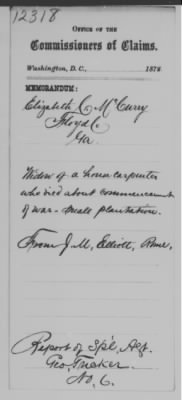 12318
OFFICE OF THE
Commissioners of Claims.
Washington, D. C., 187
MEMORANDUM:
Elizabeth C. McCurry
Floyd Co
Ga.
Widow of a house carpenter
who died about commencement
of war - small plantation.
From J. M. Elliott, Rome,
Report of Spl. Agt.
Geo. Tucker
No. 6.